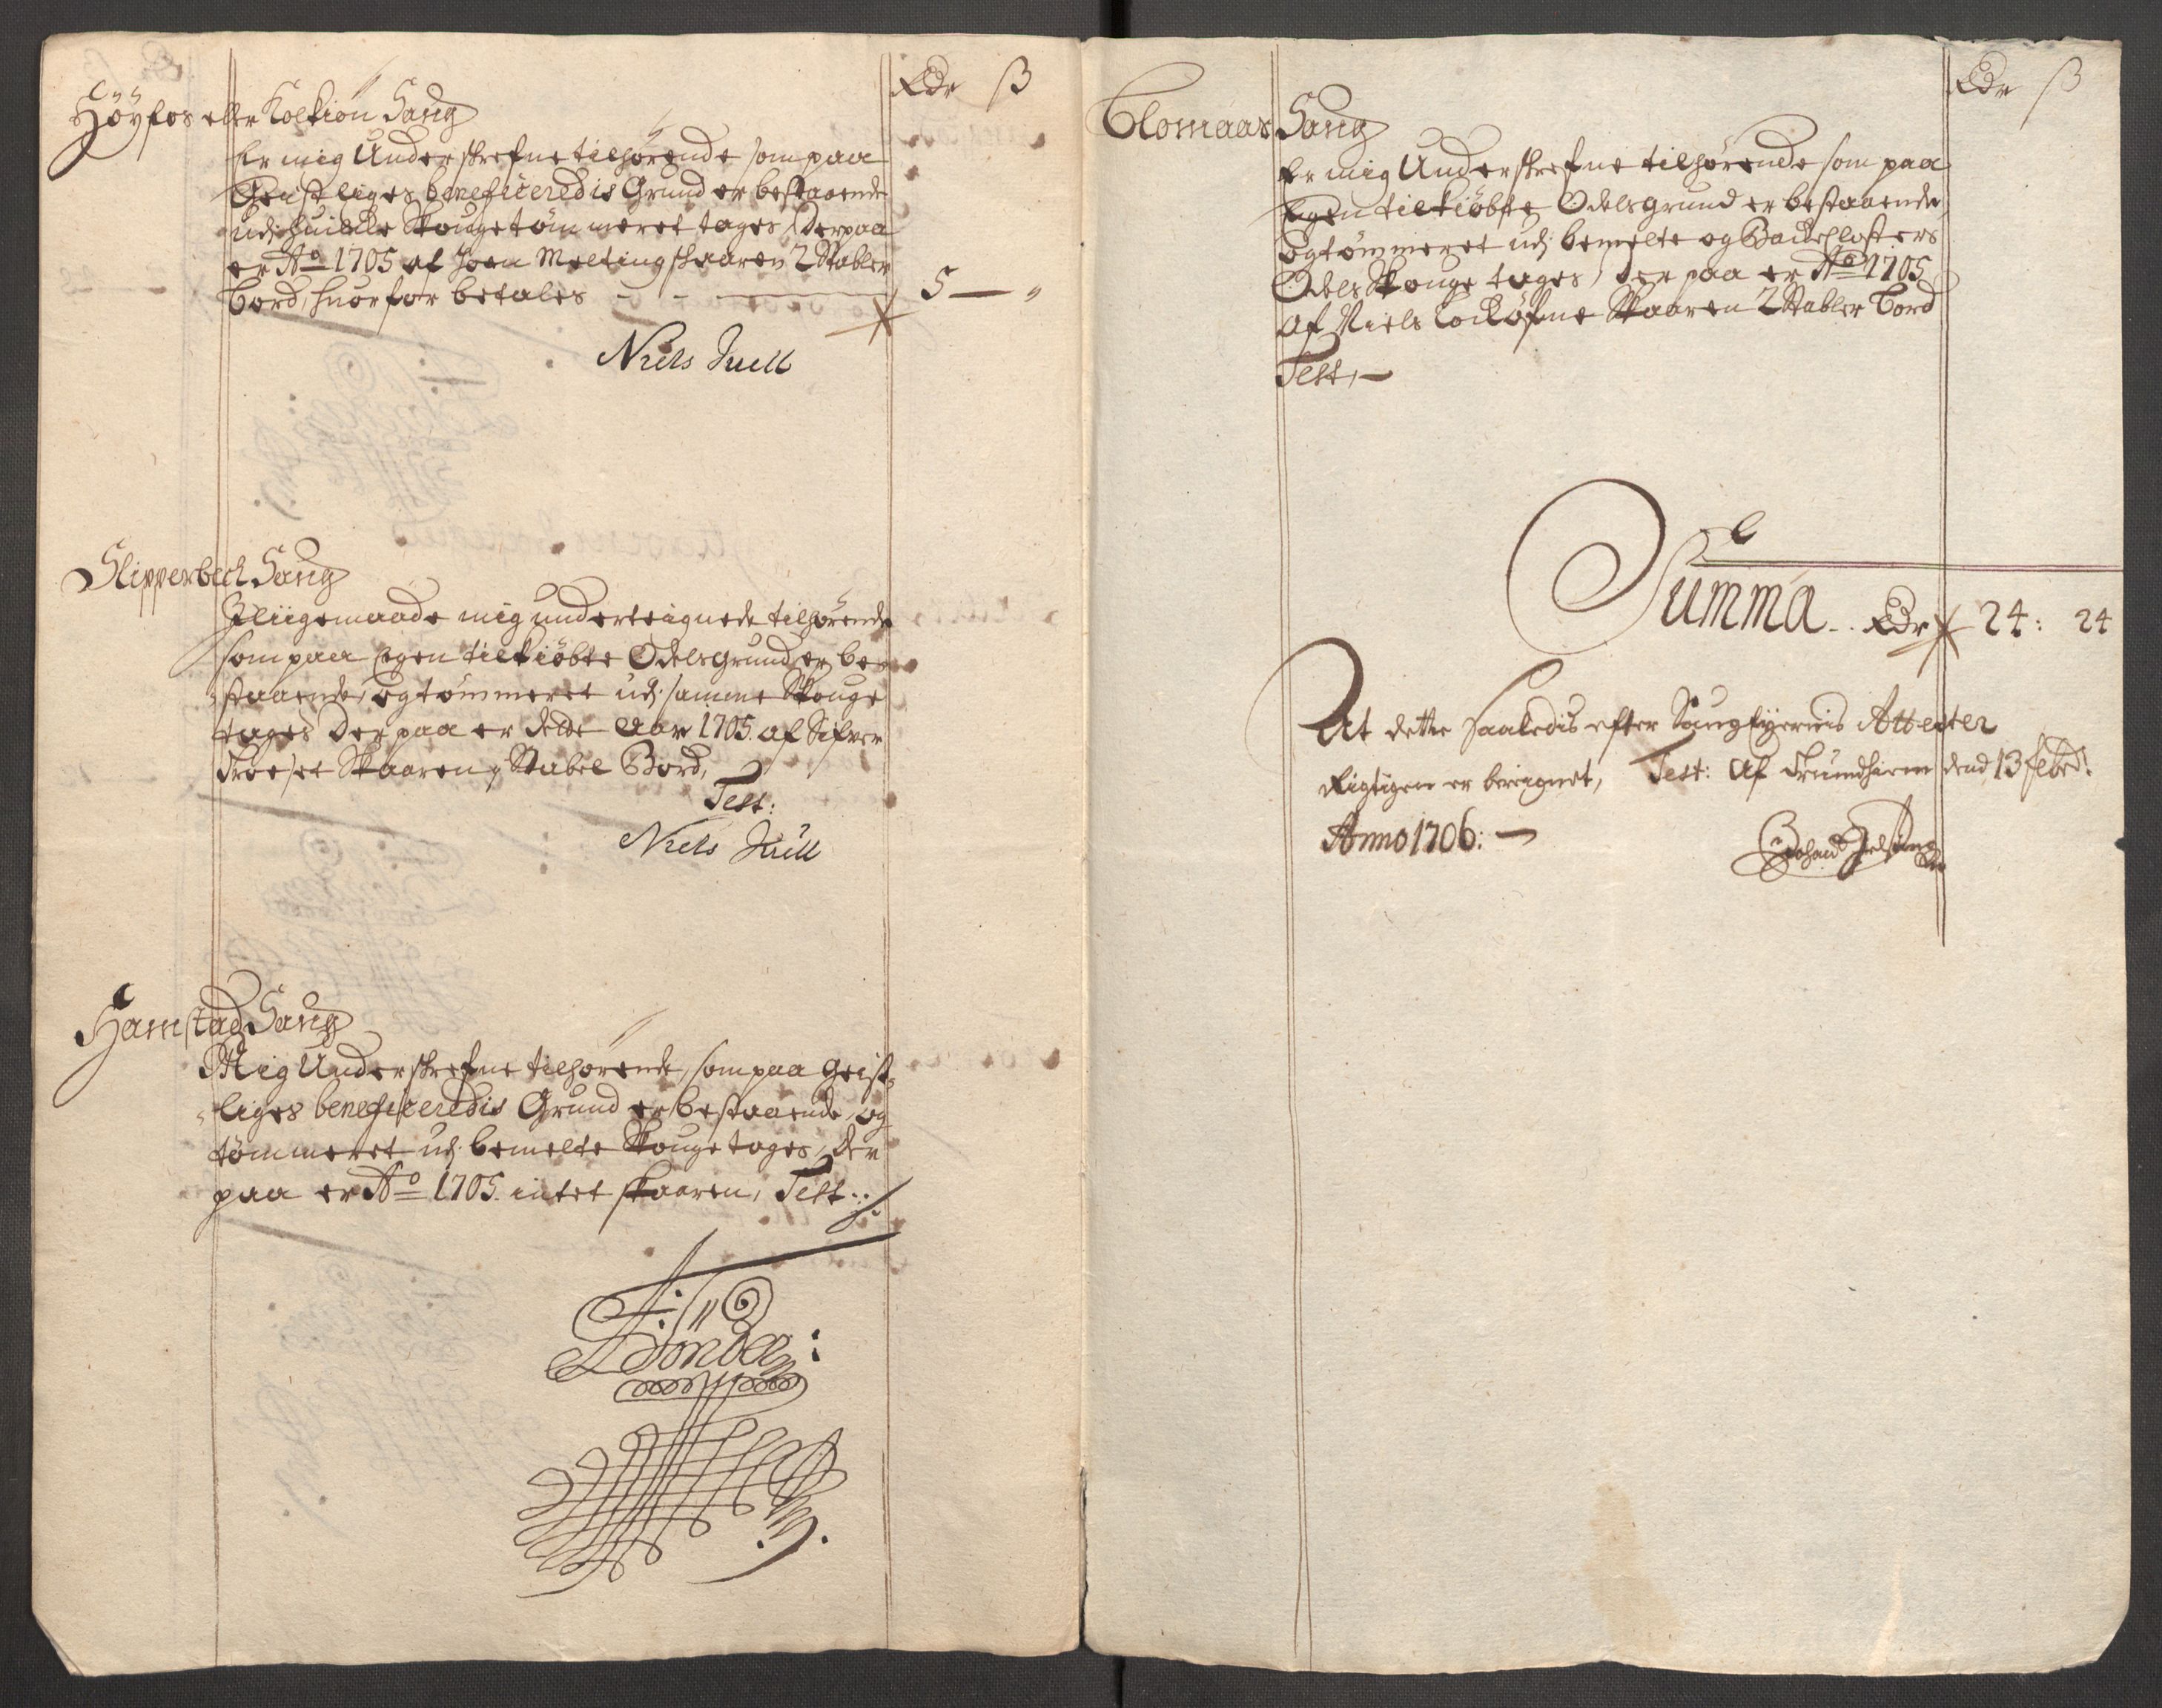 Rdr ß
Höyfos eller Kolkion Saug
Er mig Underskrefne tilhørende som paa
Geistliges beneficeredis Grund er bestaaende
udj huilke Skouge tømmeret tages, Derpaa
er Ao 1705 af Joen Melting skaaren 2 Stabler
Bord, huorfor betales - - 5 — "
Niels Juell
Slipperbech Saug
Jliigemaade mig underteignede tilhørende
som paa Egen tilkiøbte Odelsgrund er be-
staaende, og tømmeret udj samme Skouge
tages Der paa er dette Aar 1705. af Sifver
Froeset Skaaren Stabel Bord,
Test:
Niels Juell
Hamstad Saug
Mig Underskrefne tilhørende, som paa Geist-
liges beneficeredis Grund er bestaaende, og
tømmeret udj bemelte Skouge tages, der
paa er Ao 1705. intet skaaren, Test:
Rdr ß
Blomaas Saug
Er mig Underskrefne tilhørende som paa
Egen tilkiøbte Odelsgrund er bestaaende,
og tømmeret udj bemelte og Bache Closters
Odels Skouge tages, der paa er Ao 1705
af Niels Skaaren 2 Stabler Bord
Test, —
Summa - . Rdr 24: 24
At dette saaledis efter Saugeyernis Attester
Rigtigen er bereignet, Test: Af Trundhiem dend 13 febrd:
Anno 1706: —